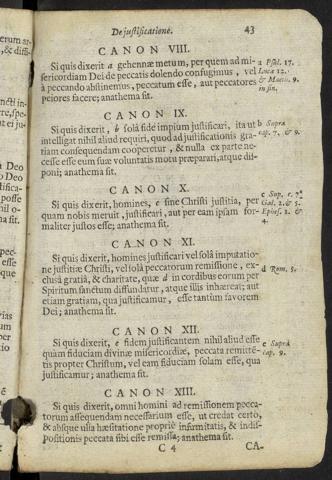 De justificatione. 43
CANON VIII.
Si quis dixerit a gehennæ metum, per quem ad mi-
sericordiam Dei de peccatis dolendo confugimus, vel
à peccando abstinemus, peccatum esse, aut peccatores
peiores facere; anathema sit.
a Psal. 17.
Luca 12.
& Matth. 9.
in fin.
CANON IX.
Si quis dixerit, b solâ fide impium justificari, ita ut
intelligat nihil aliud requiri, quod ad justificationis gra-
tiam consequendam cooperetur, & nulla ex parte ne-
cesse esse eum suæ voluntatis motu præparari, atque dis-
poni; anathema sit.
b Supra
cap. 7. & 9.
CANON X.
Si quis dixerit, homines, c sine Christi justitia, per
quam nobis meruit, justificari, aut per eam ipsam for-
maliter justos esse; anathema sit.
c Sup. c. 7.
Gal. 2. & 5.
Ephes. 2. &
4.
CANON XI.
Si quis dixerit, homines justificari vel solâ imputatio-
ne justitiæ Christi, vel solâ peccatorum remissione, ex-
clusâ gratiâ, & charitate, quæ d in cordibus eorum per
Spiritum sanctum diffundatur, atque illis inhæreat; aut
etiam gratiam, qua justificamur, esse tantùm favorem
Dei; anathema sit.
d Rom. 5.
CANON XII.
Si quis dixerit, e fidem justificantem nihil aliud esse
quam fiduciam divinæ misericordiæ, peccata remittē-
tis propter Christum, vel eam fiduciam solam esse, qua
justificamur; anathema sit.
e Suprà
cap. 9.
CANON XIII.
Si quis dixerit, omni homini ad remissionem pecca-
torum assequendam necessarium esse, ut credat certo,
& absque ulla hæsitatione propriè infirmitatis, & indis-
positionis peccata sibi esse remissa; anathema sit.
C 4 CA-